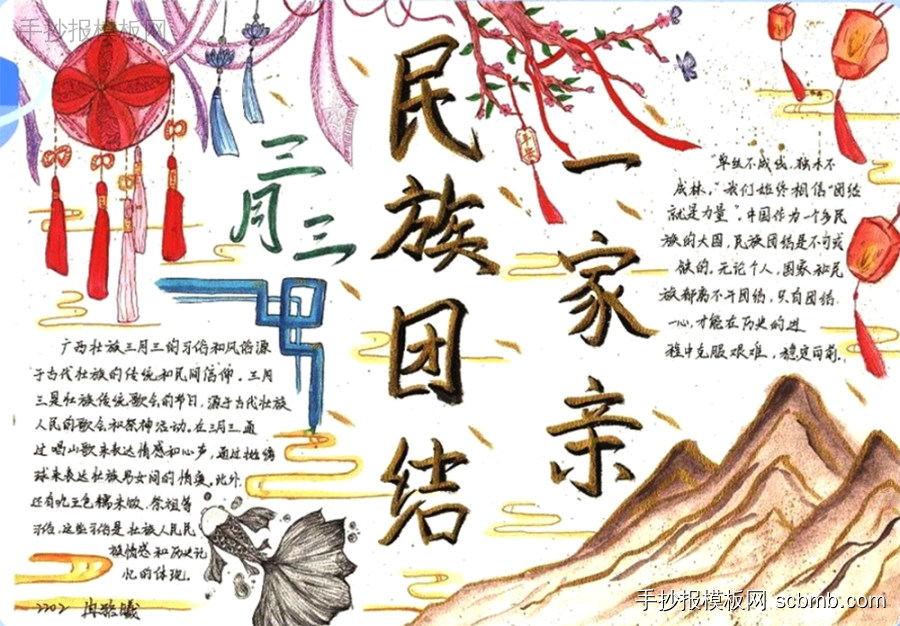 手抄报模板网
三月三
民族团结
一家亲
平安
"单丝不成线,独木不
成林,"我们始终相信"团结
就是力量"。中国作为一个多民
族的大国,民族团结是不可或
缺的。无论个人,国家和民
族都离不开团结,只有团结
一心,才能在历史的进
程中克服艰难,稳定向前。
广西壮族三月三的习俗和风俗源
于古代壮族的传统和民间信仰。三月
三是壮族传统歌会的节日,源于古代壮族
人民的歌会和祭神活动。在三月三通
过唱山歌来表达情感和心声,通过抛绣
球来表达壮族男女间的情爱。此外
还有吃五色糯米饭、祭祖等
习俗,这些习俗是壮族人民民
族情感和历史记
忆的体现。
2202 冉 曦
手抄报模板网 scbmb.com